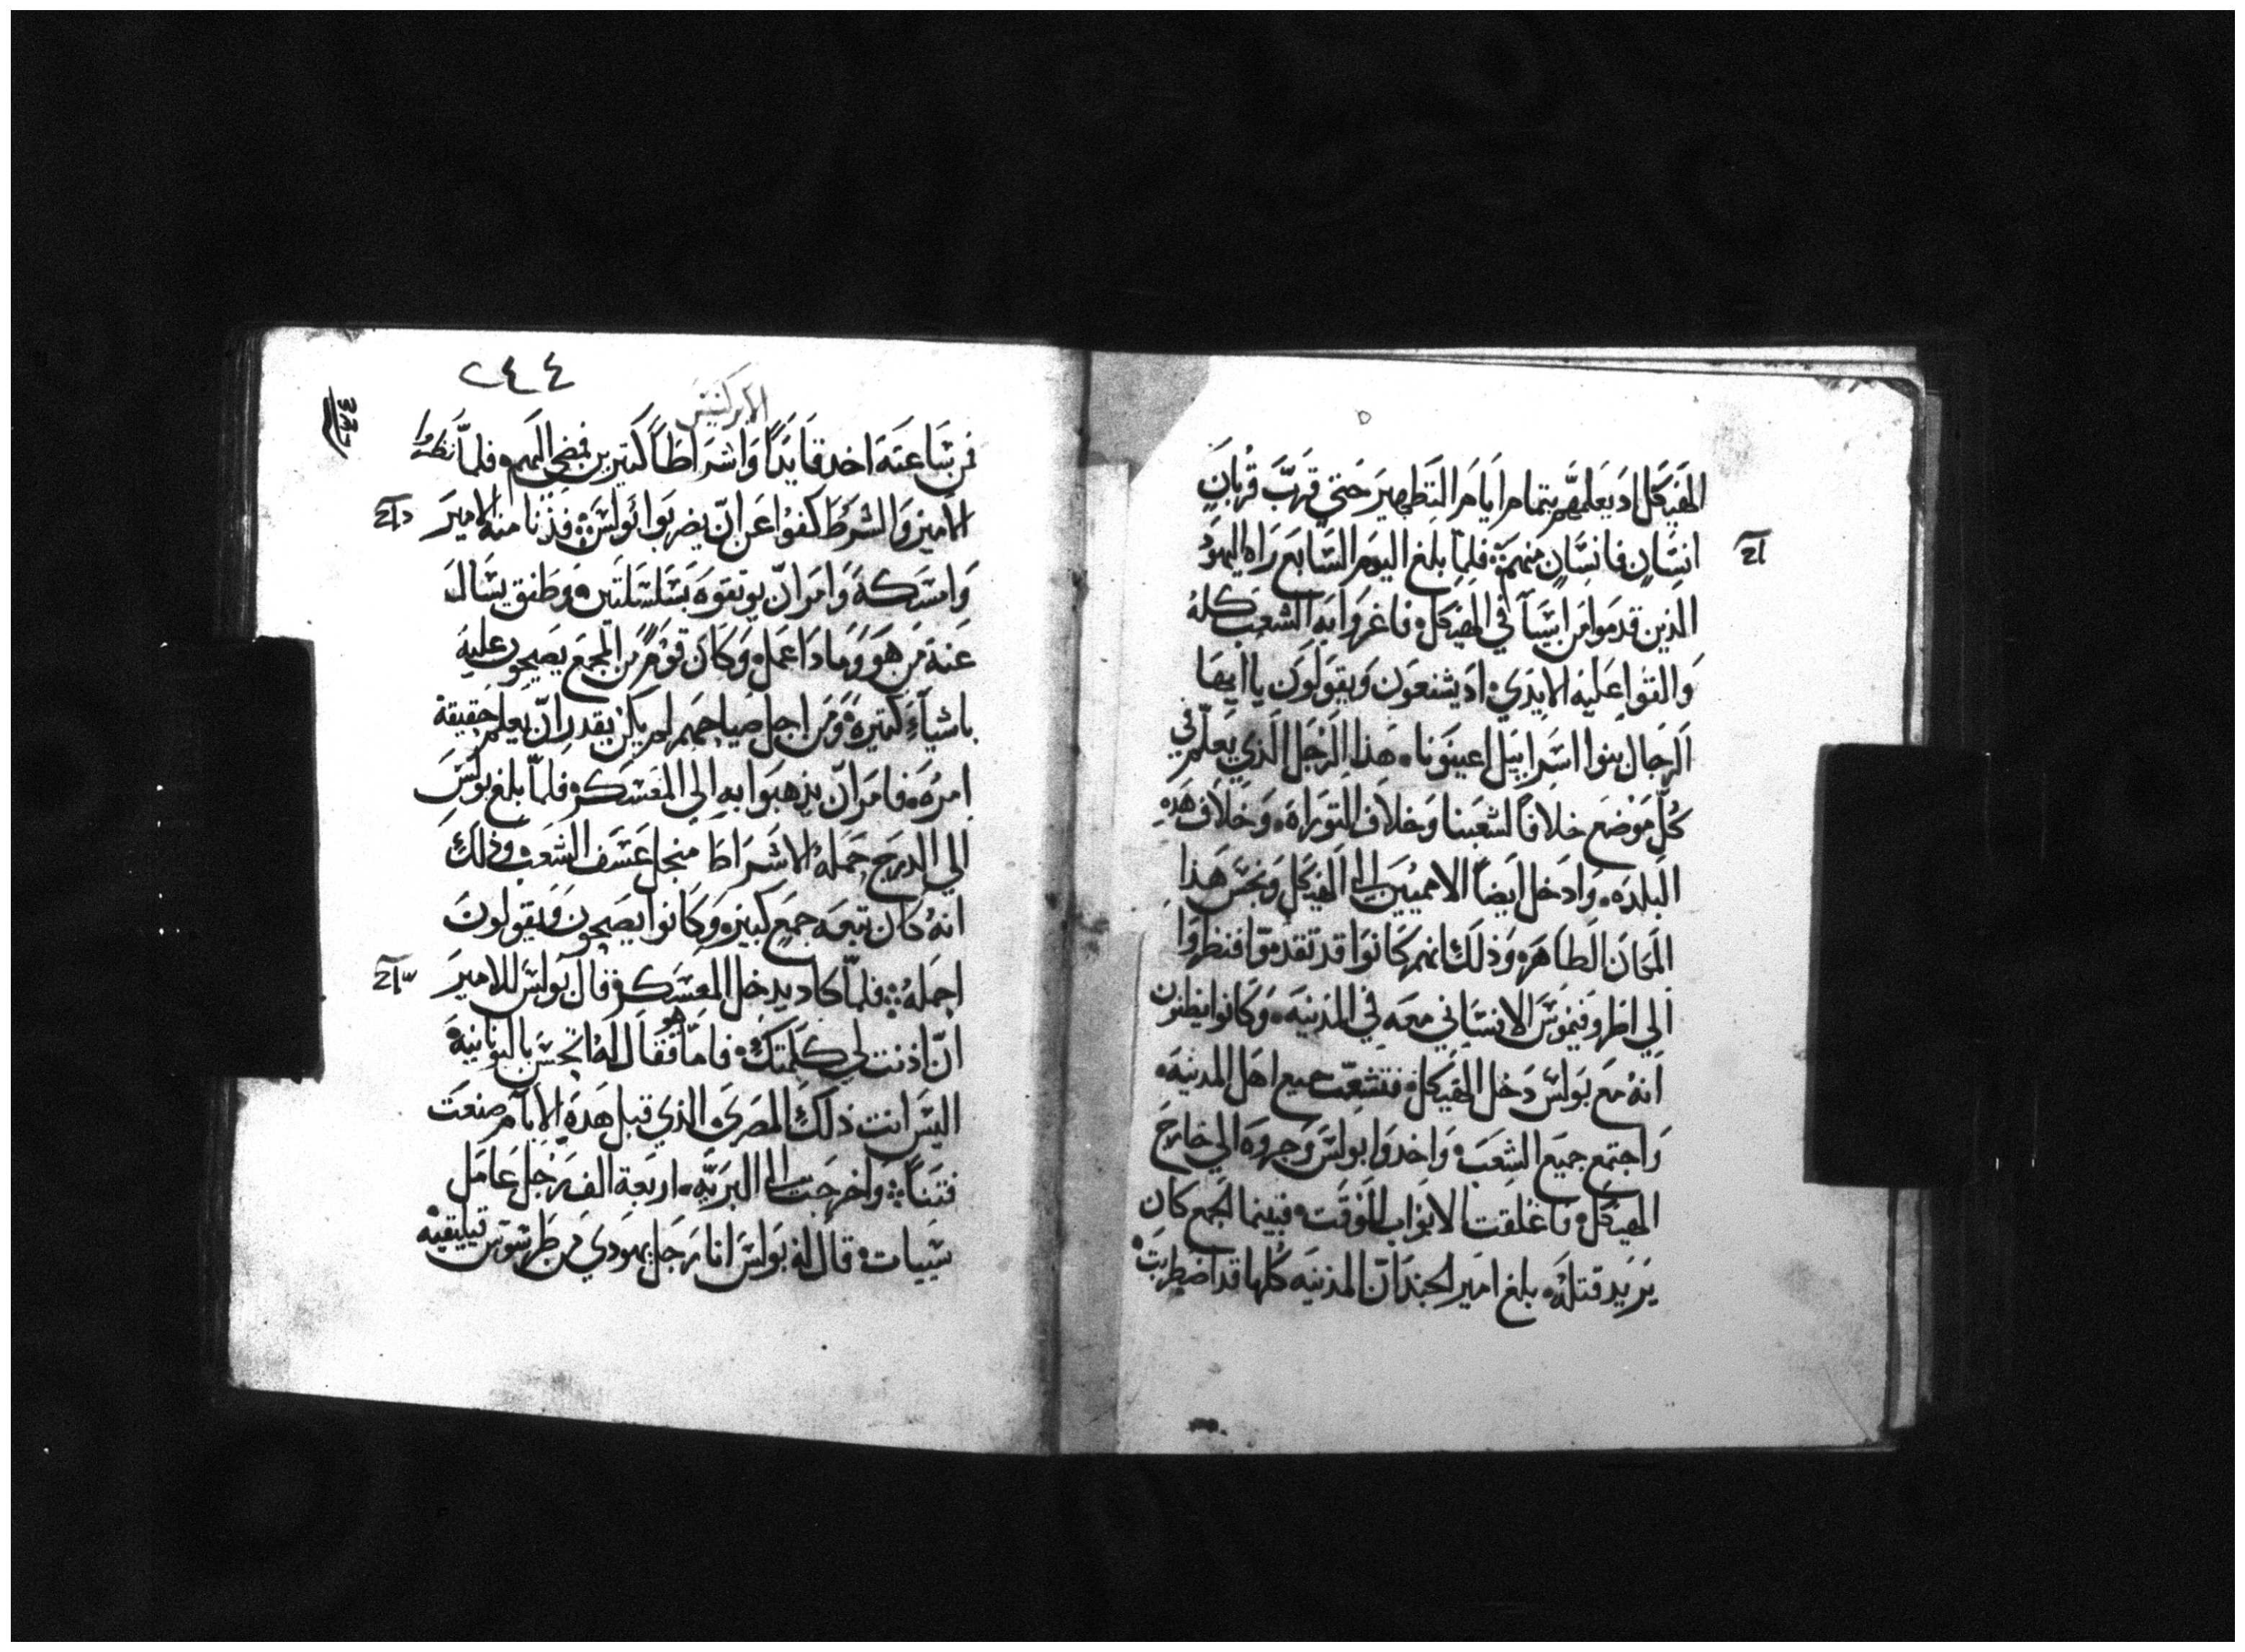 الهيكل اد يعلمهم بتمام ايام التطهير حتي قرب قربان
انسان فانسان منهم فلما بلغ اليوم السابع راه اليهود
الذين قدموا من اسيا في الهيكل فاغروا به الشعب كله
والقوا عليه الايدي اد يشنعون ويقولون يا ايها
الرجال بنوا اسراييل اعينونا هذا الرجل الذي يعلم في
كل موضع خلافا لشعبنا وخلاف التوراه وخلاف هذه
البلده وادخل ايضا الامميين الي الهيكل ونجس هذا
المكان الطاهره وذلك انهم كانوا قد تقدموا فنظروا
الي اطروفيموس الافساني معه في المدينه وكانوا يظنون
انه مع بولس دخل الهيكل فتشعث جميع اهل المدينه
واجتمع جميع الشعب واخدوا بولس وجروه الي خارج
الهيكل فاغلقت الابواب للوقت فبينما الجمع كان
يريد قتله بلغ امير الجند ان المدينه كلها قد اضطربت
٢٤٤
الابركسيس
من ساعته اخد قايدا واشراطا كتيرين فمضي اليهم فلما نظروا
الامير والشرط كفوا عن ان يضربوا بولس فدنا منه الامير
وامسكه وامر ان يوتقوه بسلسلتين وطفق يسال
عنه من هو وما دا عمل وكان قوم من المجمع يصيحون عليه
باشياء كتيره ومن اجل صياحهم لم يكن يقدر ان يعلم حقيقة
امره فامر ان يذهبوا به الي المعسكر فلما بلغ بولس
الي الدرج حمله الاشراط منجل عسف الشعب وذلك
انه كان تبعه جمع كبير وكانوا يصيحون ويقولون
احمله فلما كاد يدخل المعسكر قال بولس للامير
ان اذنت لي كلمتك فاما هو فقال له اتحسن باليونانية
اليس انت ذلك المصري الذي قبل هذه الايام صنعت
فتنا واخرجت الي البريه اربعة الف رجل عامل
سييات قال له بولس انا رجل يهودي من طرسوس قيليقيه